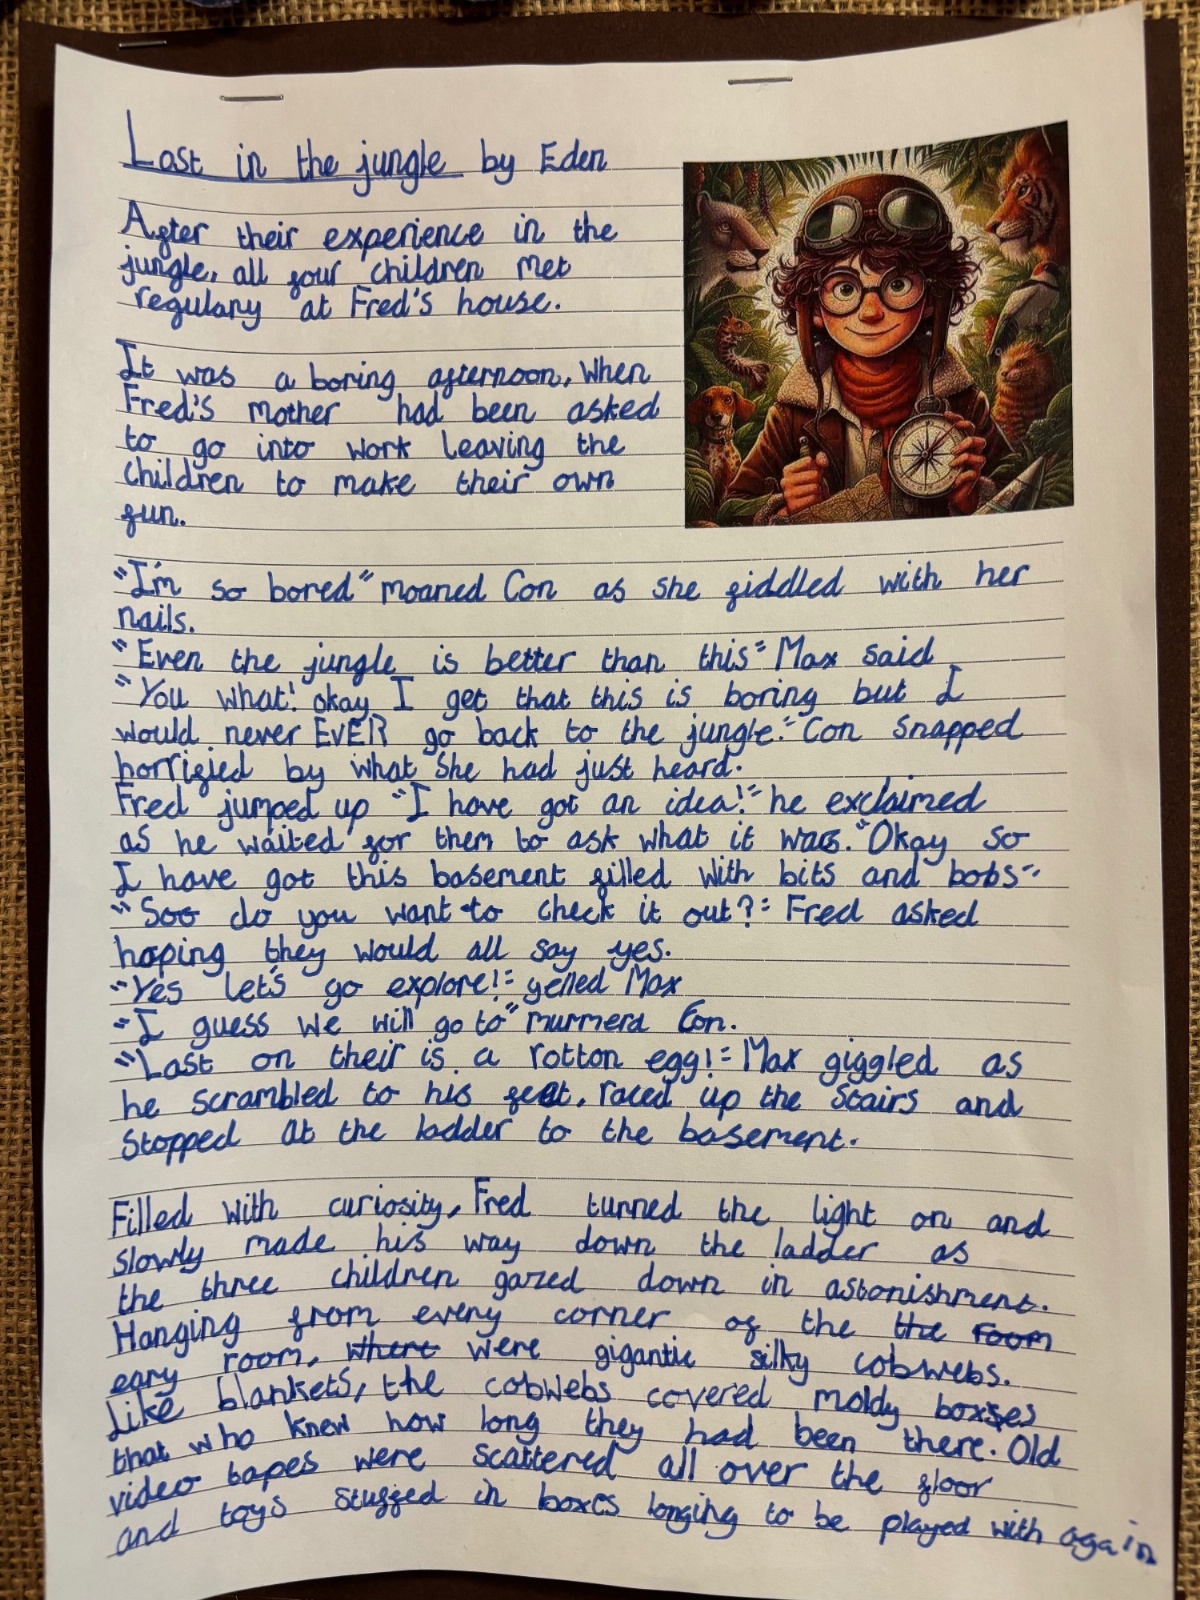 Lost in the jungle by Eden
After their experience in the
jungle, all four children met
regulary at Fred's house.
It was a boring afternoon, When
Fred's mother had been asked
to go into work leaving the
children to make their own
fun.
"I'm so bored" moaned Con as she fiddled with her
nails.
"Even the jungle is better than this" Max said
"You what! okay I get that this is boring but I
would never EVER go back to the jungle." Con snapped
horrified by what she had just heard.
Fred jumped up "I have got an idea!" he exclaimed
as he waited for them to ask what it was. "Okay so
I have got this basement filled with bits and bobs"
"Soo do you want to check it out?" Fred asked
hoping they would all say yes.
"Yes let's go explore!" yelled Max
"I guess we will go to" murmerd Con.
"Last on their is a rotton egg!" Max giggled as
he scrambled to his feet, raced up the stairs and
stopped at the ladder to the basement.
Filled with curiosity, Fred turned the light on and
slowly made his way down the ladder as
the three children gazed down in astonishment.
Hanging from every corner of the the room
eary room, where were gigantic silky cobwebs.
Like blankets, the cobwebs covered moldy boxes
that who knew how long they had been there. Old
video tapes were scattered all over the floor
and toys stuffed in boxes longing to be played with again